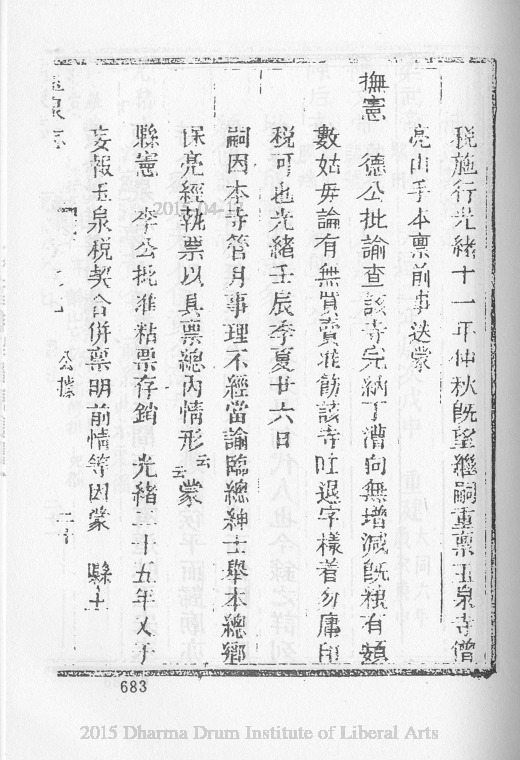 稅施行光緒十一年仲秋既望繼嗣重稟玉泉寺僧
亮由手本稟前事迭蒙
撫憲 德公批諭查該寺完納丁漕向無增減既種有頗
數姑毋論有無買賣准飭該寺吐退字樣着勿庸印
稅可也光緒壬辰季夏廿六日
嗣因本寺管月事理不經當諭臨總紳士舉本總鄉
保亮經執票以具稟總內情形云蒙
縣憲 李公批准粘票存銷 光緒二十五年又于
妄報玉泉稅契合併稟明前情等因蒙 縣主
玉泉志 公據
683
2015-04-14
2015 Dharma Drum Institute of Liberal Arts